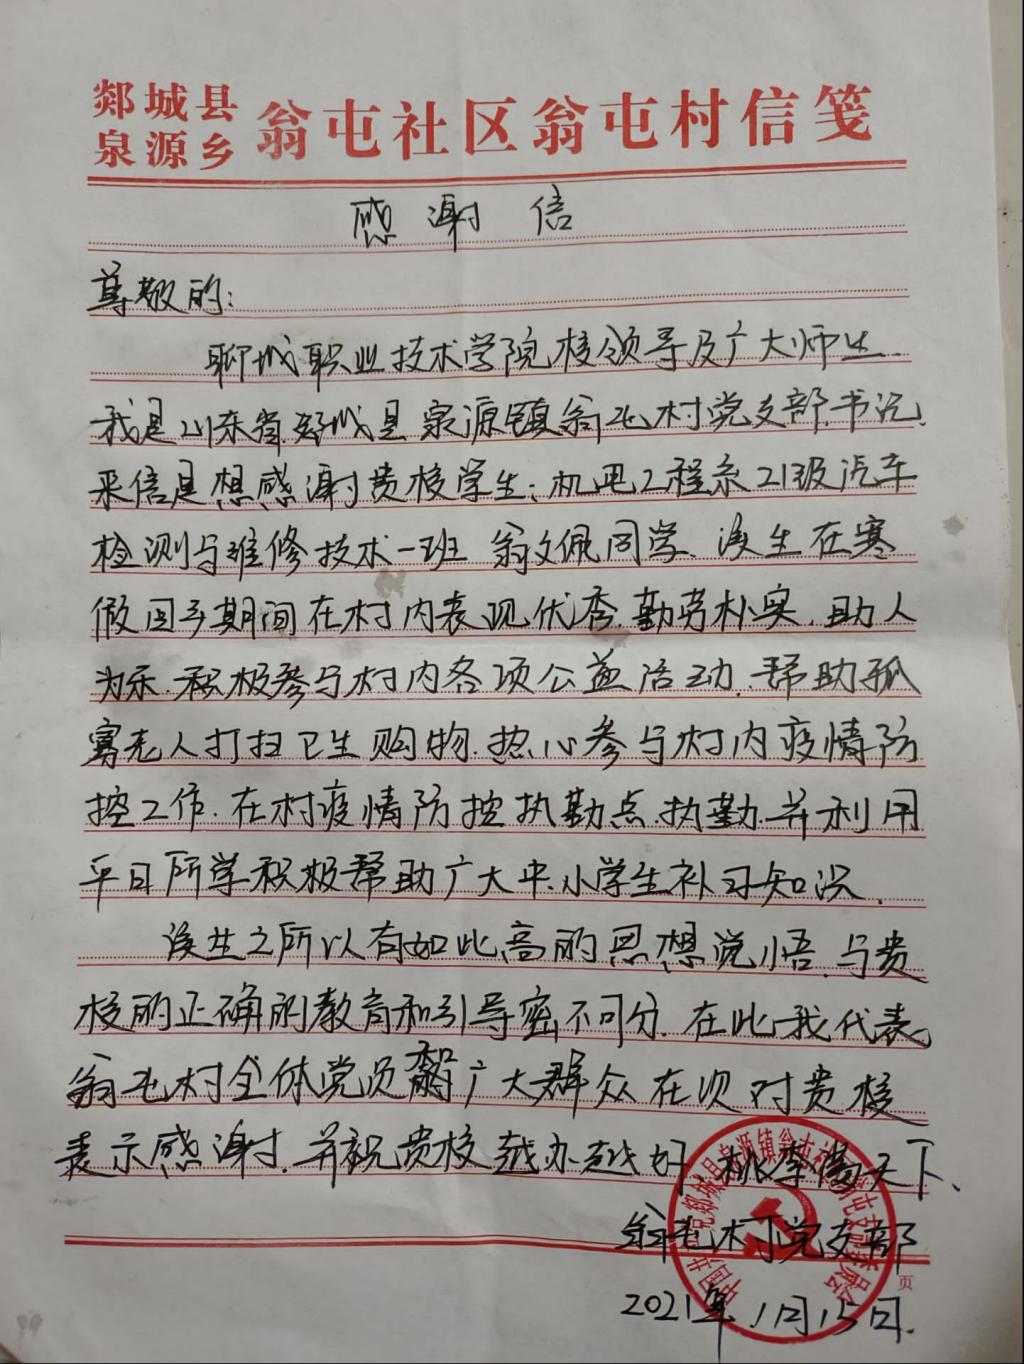 郯城县
泉源乡
翁屯社区翁屯村信笺
感谢信
尊敬的:
聊城职业技术学院校领导及广大师生
我是山东省郯城县泉源镇翁屯村党支部书记,
来信是想感谢贵校学生:机电工程系21级汽车
检测与维修技术一班 翁文佩同学、该生在寒
假回乡期间在村内表现优秀、勤劳朴实、助人
为乐、积极参与村内各项公益活动、帮助孤
寡老人打扫卫生购物、热心参与村内疫情防
控工作、在村疫情防控执勤点执勤、并利用
平日所学积极帮助广大中、小学生补习知识、
该生之所以有如此高的思想觉悟、与贵
校的正确的教育和引导密不可分、在此我代表
翁屯村全体党员 广大群众在次对贵校
表示感谢、并祝贵校越办越好、桃李满天下、
翁屯村党支部
页
2021年1月15日.